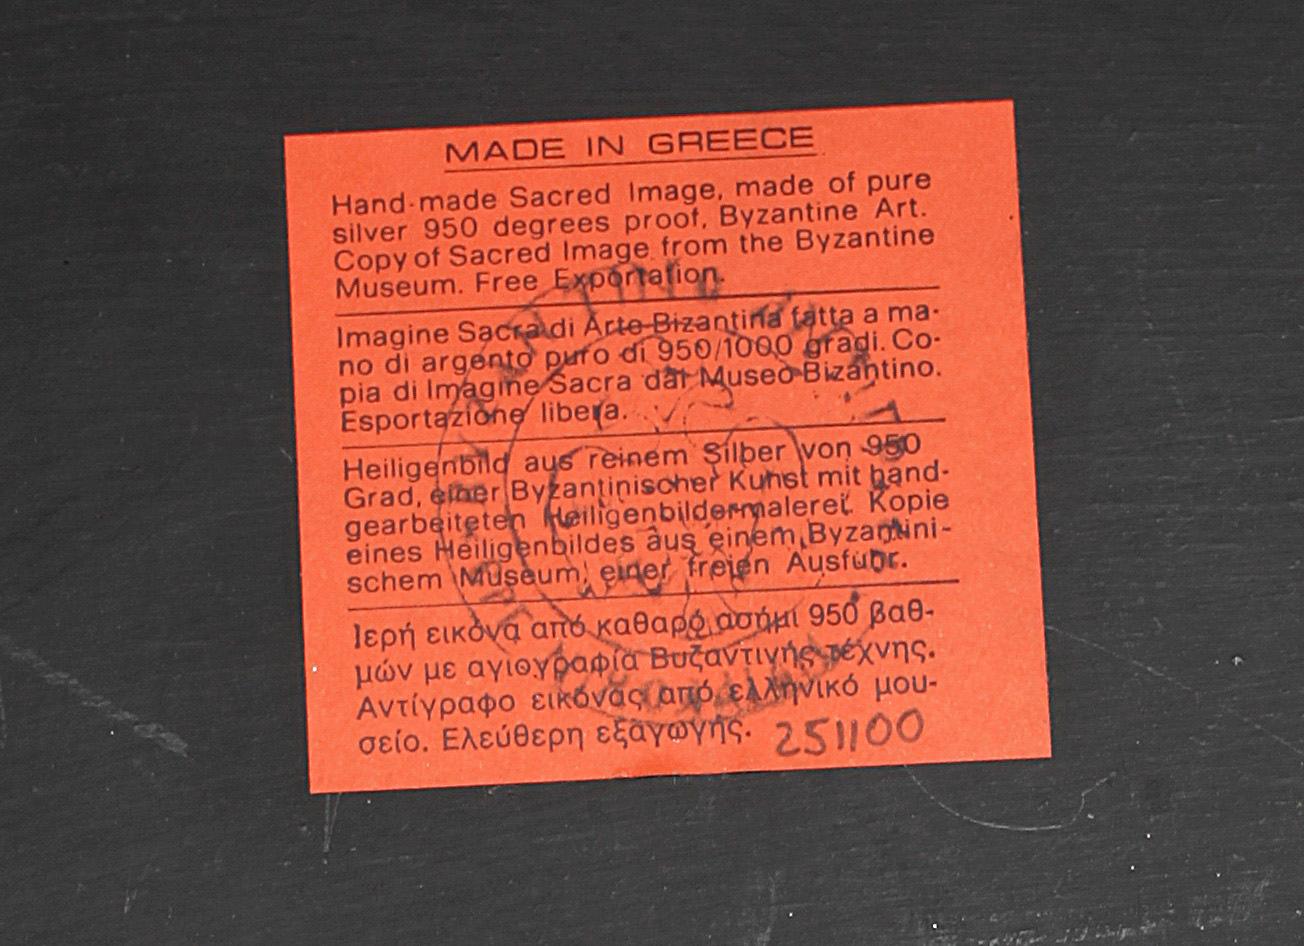 MADE IN GREECE
Hand-made Sacred Image, made of pure
silver 950 degrees proof, Byzantine Art.
Copy of Sacred Image from the Byzantine
Museum. Free Exportation.
Imagine Sacra di Arte Bizantina fatta a ma-
no di argento puro di 950/1000 gradi. Co-
pia di Imagine Sacra dal Museo Bizantino.
Esportazione libera.
Heiligenbild aus reinem Silber von 950
Grad, einer Byzantinischer Kunst mit hand-
gearbeiteten Heiligenbildermalerei. Kopie
eines Heiligenbildes aus einem Byzantini-
schem Museum, einer freien Ausfuhr.
Ιερή εικόνα από καθαρό ασήμι 950 βαθ-
μών με αγιογραφία Βυζαντινής τέχνης.
Αντίγραφο εικόνας από ελληνικό μου-
σείο. Ελεύθερη εξαγωγής.
251100